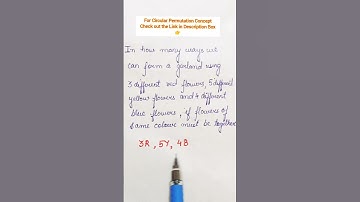 For Circular Permutation Concept
Check out the Link in Description Box
👉
In how many ways we
can form a garland using
3 different red flowers, 5 different
yellow flowers and 4 different
blue flowers, if flowers of
same colour must be together
3R, 5Y, 4B